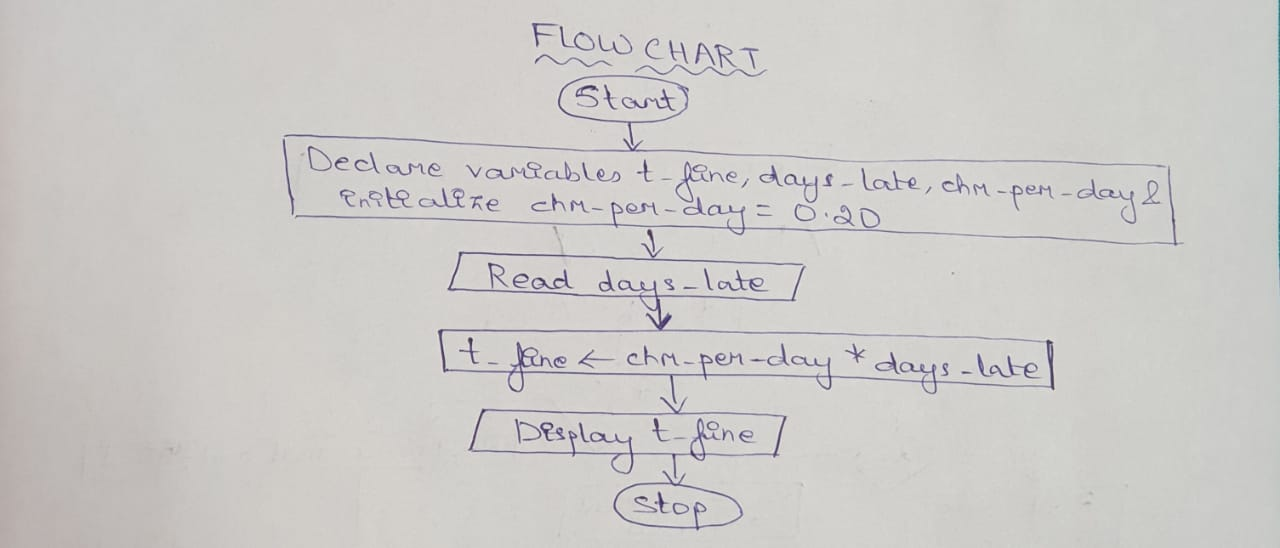 FLOW CHART
Start
Declare variables t_fine, days_late, chr_per_day &
initialize chr_per_day = 0.20
Read days_late
t_fine ← chr_per_day * days_late
Display t_fine
Stop